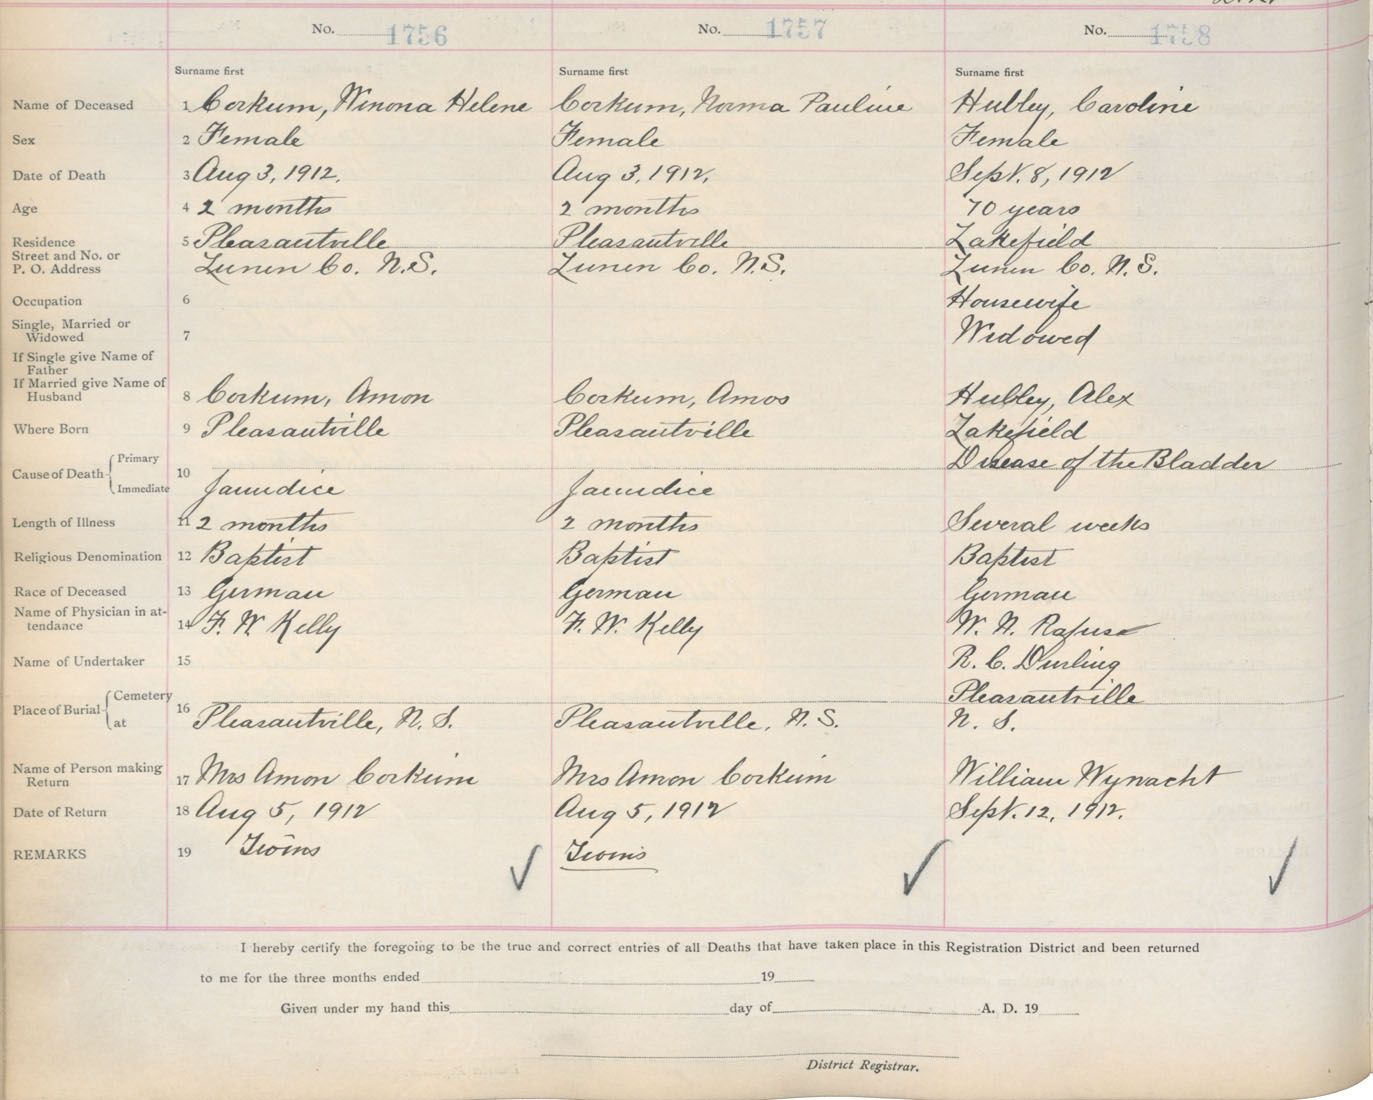 No. 1756 No. 1757 No. 1758
Surname first Surname first Surname first
Name of Deceased 1 Corkum, Winona Helene Corkum, Norma Pauline Hubley, Caroline
Sex 2 Female Female Female
Date of Death 3 Aug 3, 1912. Aug 3, 1912. Sept. 8, 1912
Age 4 2 months 2 months 70 years
Residence 5 Pleasantville Pleasantville Lakefield
Street and No. or
P. O. Address Lunen Co. N.S. Lunen Co. N.S. Lunen Co. N.S.
Occupation 6 Housewife
Single, Married or
Widowed 7 Widowed
If Single give Name of
Father
If Married give Name of
Husband 8 Corkum, Amon Corkum, Amos Hubley, Alex
Where Born 9 Pleasantville Pleasantville Lakefield
Cause of Death Primary 10 Disease of the Bladder
Immediate Jaundice Jaundice
Length of Illness 11 2 months 2 months Several weeks
Religious Denomination 12 Baptist Baptist Baptist
Race of Deceased 13 German German German
Name of Physician in at-
tendance 14 F. W. Kelly F. W. Kelly W. N. Rafuse
Name of Undertaker 15 R. C. Durling
Place of Burial Cemetery 16 Pleasantville
at Pleasantville, N. S. Pleasantville, N. S. N. S.
Name of Person making
Return 17 Mrs Amon Corkum Mrs Amon Corkum William Wynacht
Date of Return 18 Aug 5, 1912 Aug 5, 1912 Sept. 12, 1912.
REMARKS 19 Twins Twins
I hereby certify the foregoing to be the true and correct entries of all Deaths that have taken place in this Registration District and been returned
to me for the three months ended 19
Given under my hand this day of A. D. 19
District Registrar.